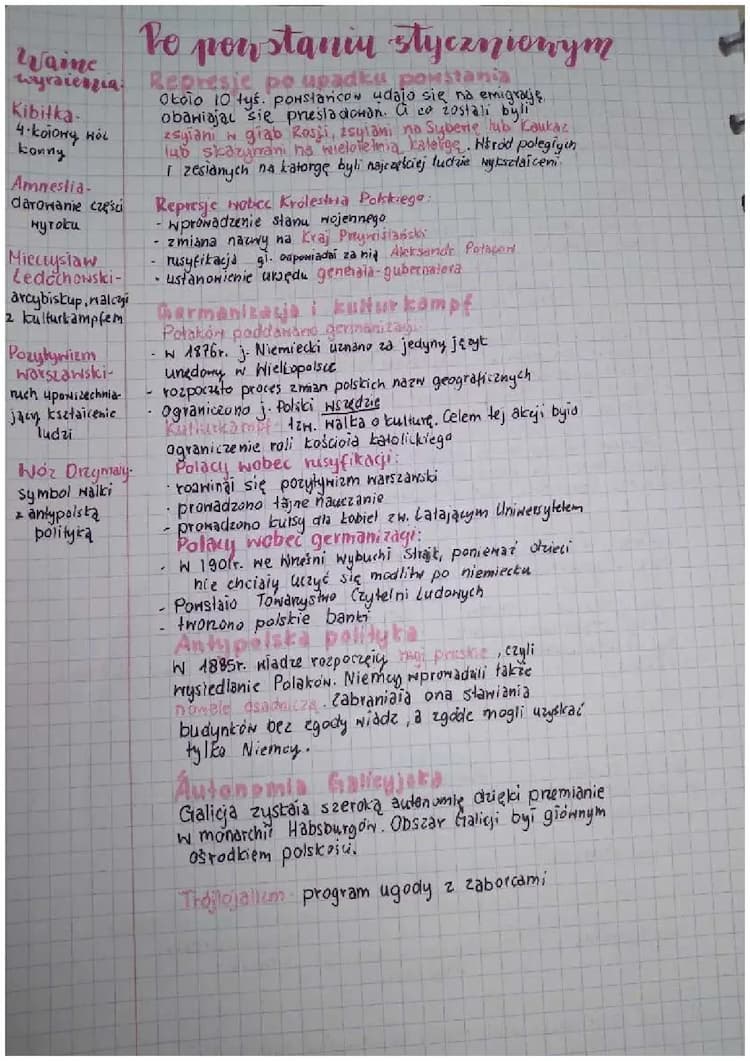 Po powstaniu styczniowym
Ważne
wyrażenia:
Kibitka-
4-kołowy wóz
konny
Amnestia-
darowanie części
wyroku
Mieczysław
Ledóchowski-
arcybiskup, walczył
z kulturkampfem
Pozytywizm
warszawski-
ruch upowszechnia-
jący kształcenie
ludzi
Wóz Drzymały-
symbol walki
z antypolską
polityką
Represje po upadku powstania
Około 10 tyś. powstańców udało się na emigrację,
obawiając się prześladowań. Ci co zostali byli
zsyłani w głąb Rosji, zsyłani na Syberię lub Kaukaz
lub skazywani na wieloletnią katorgę. Wśród poległych
i zesłanych na katorgę byli najczęściej ludzie wykształceni.
Represje wobec Królestwa Polskiego:
- wprowadzenie stanu wojennego
- zmiana nazwy na Kraj Przywiślański
- rusyfikacja gł. odpowiadał za nią Aleksandr Potapow
- ustanowienie urzędu generała-gubernatora
Germanizacja i kulturkampf
Polaków poddawano germanizacji
- w 1876r. j. Niemiecki uznano za jedyny język
urzędowy w Wielkopolsce
- rozpoczęto proces zmian polskich nazw geograficznych
- Ograniczono j. Polski wszędzie
Kulturkampf- tzw. walka o kulturę. Celem tej akcji było
ograniczenie roli kościoła katolickiego
Polacy wobec rusyfikacji:
- rozwinął się pozytywizm warszawski
- prowadzono tajne nauczanie
- prowadzono kursy dla kobiet zw. Latającym Uniwersytetem
Polacy wobec germanizacji:
- W 1901r. we Wrześni wybuchł strajk, ponieważ dzieci
nie chciały uczyć się modlitw po niemiecku
- Powstało Towarzystwo Czytelni Ludowych
- tworzono polskie banki
Antypolska polityka
W 1885r. władze rozpoczęły rugi pruskie, czyli
wysiedlanie Polaków. Niemcy wprowadzili także
nowelę osadniczą. Zabraniała ona stawiania
budynków bez zgody władz, a zgodę mogli uzyskać
tylko Niemcy.
Autonomia Galicyjska
Galicja zyskała szeroką autonomię dzięki przemianie
w monarchii Habsburgów. Obszar Galicji był głównym
ośrodkiem polskości.
Trójlojalizm- program ugody z zaborcami